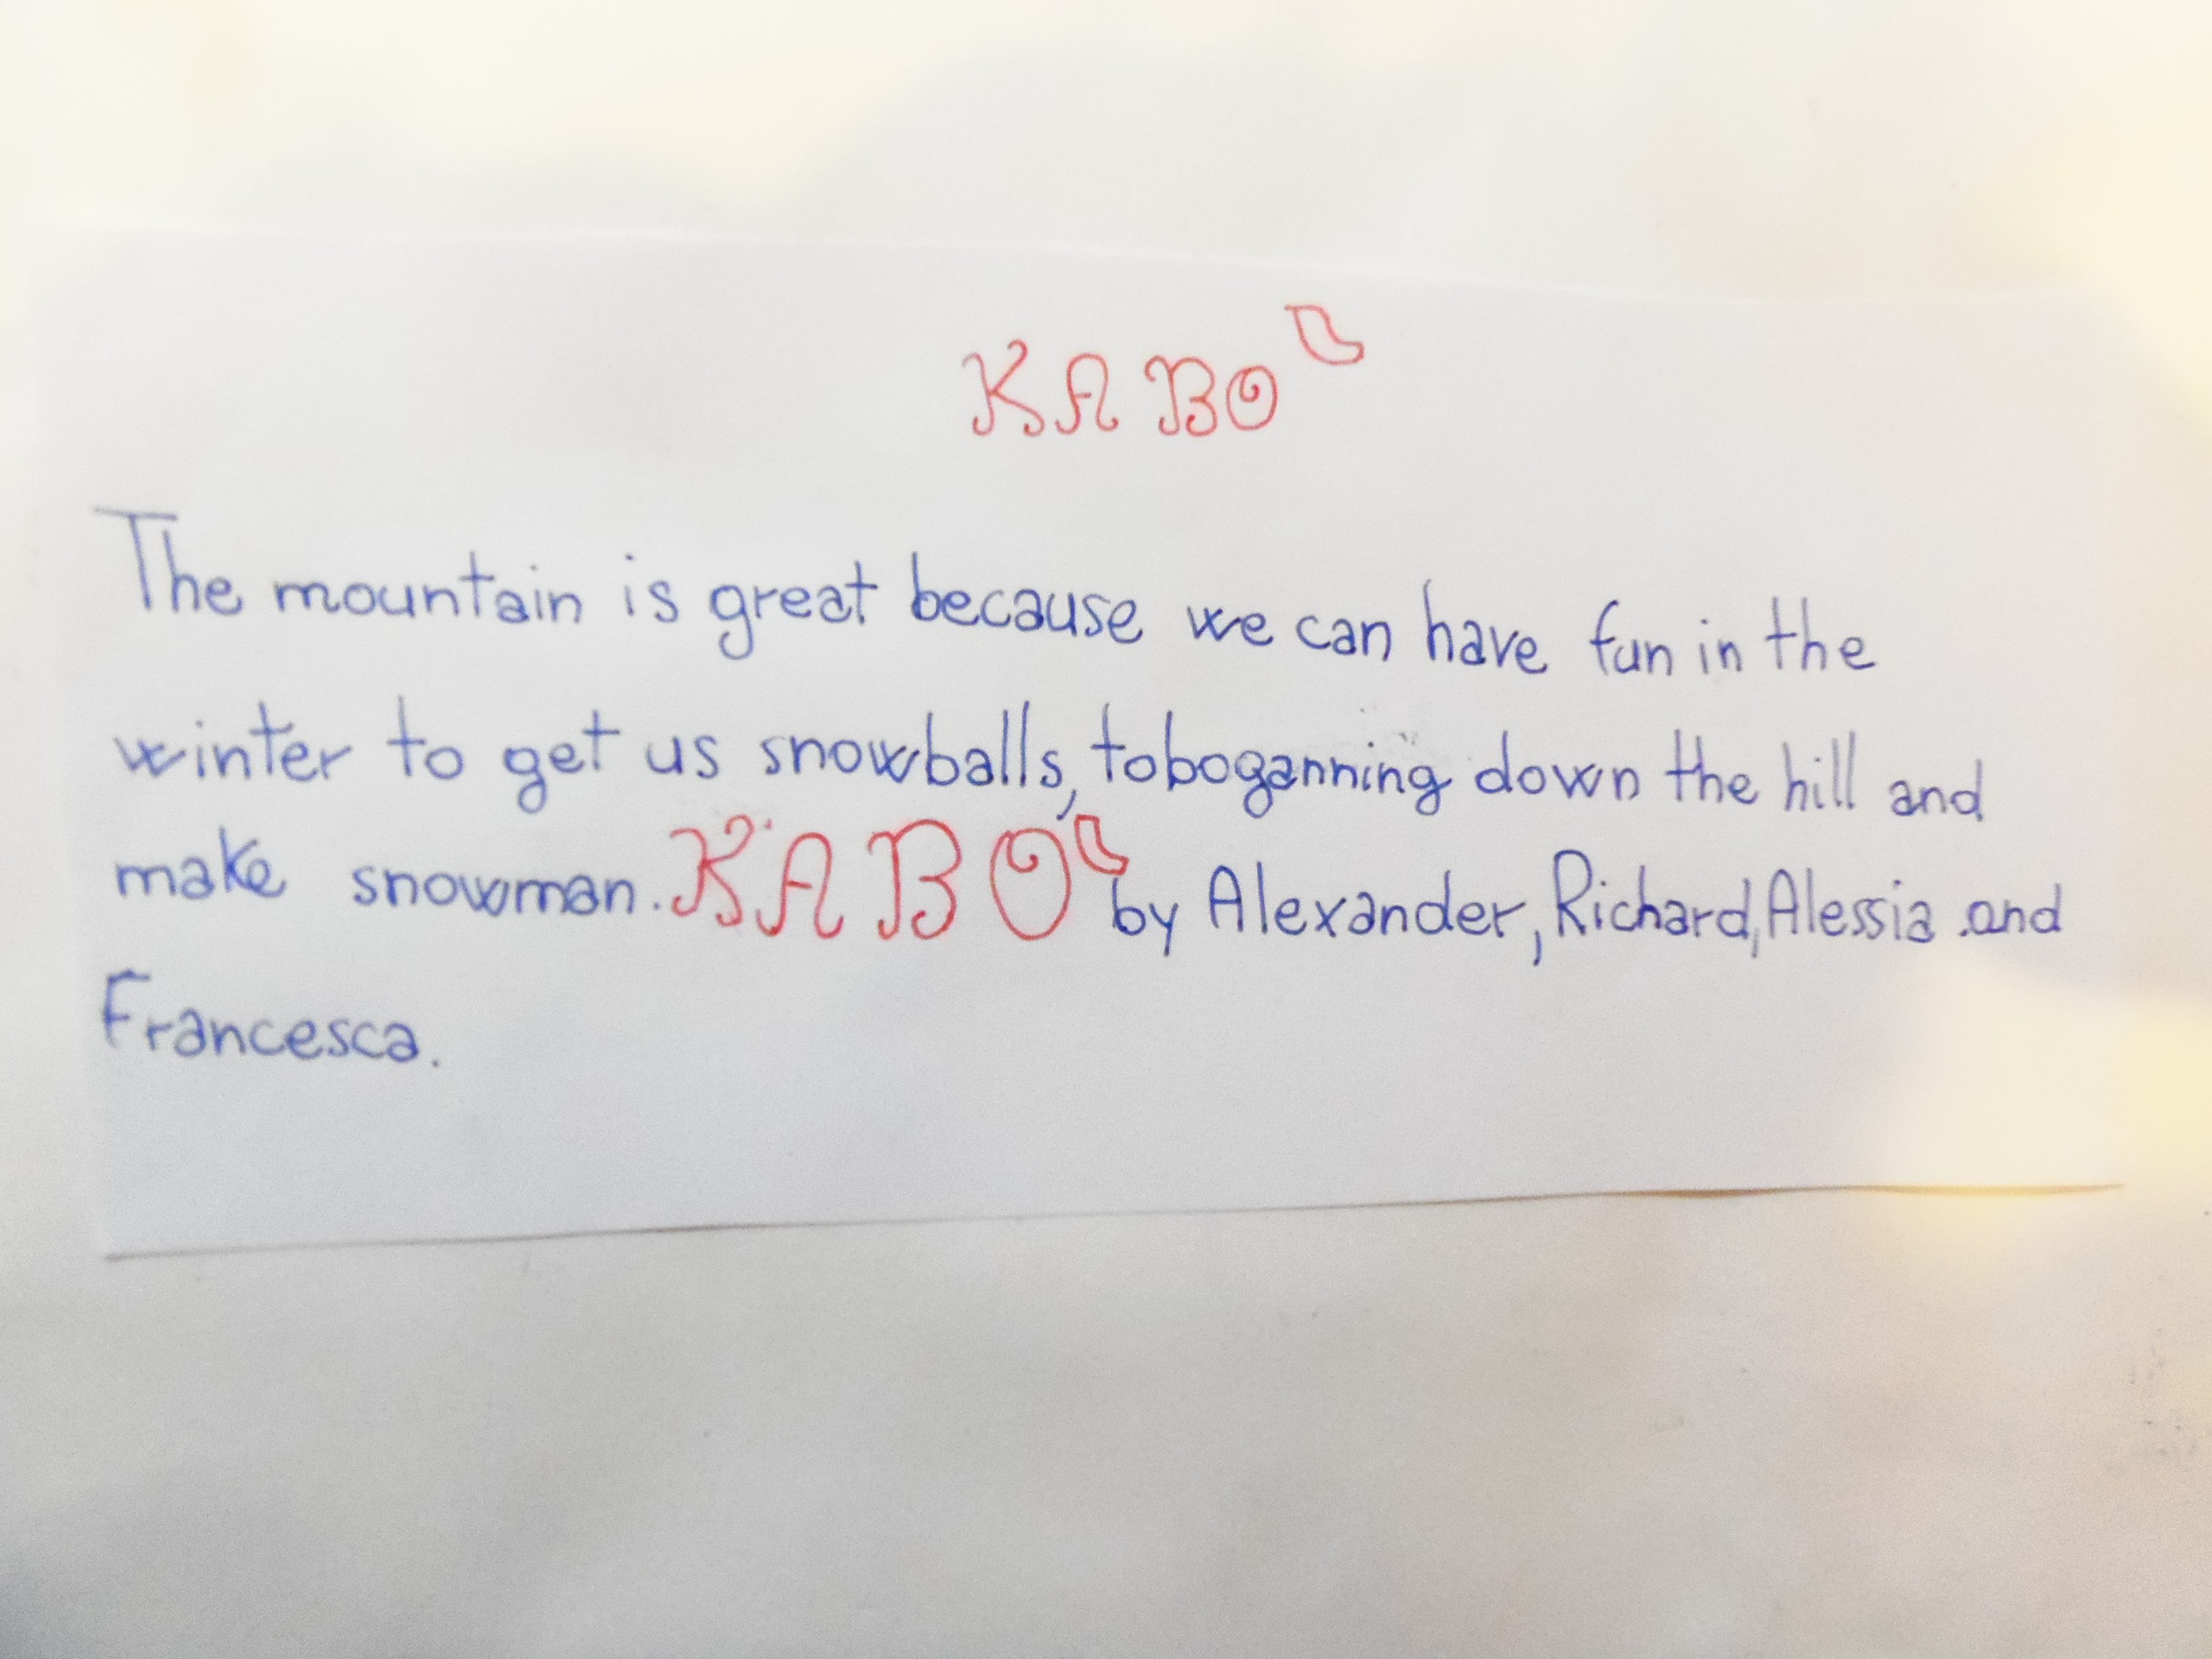 KABO'
The mountain is great because we can have fun in the
winter to get us snowballs, toboganning down the hill and
make snowman. KABO' by Alexander, Richard, Alessia and
Francesca.